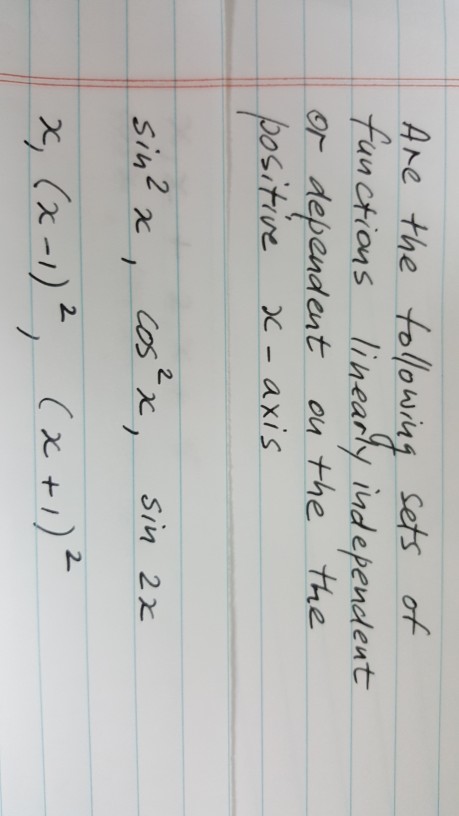 Are the following sets of
functions linearly independent
or dependent on the the
positive x-axis
sin²x, cos²x, sin 2x
x, (x-1)², (x+1)²